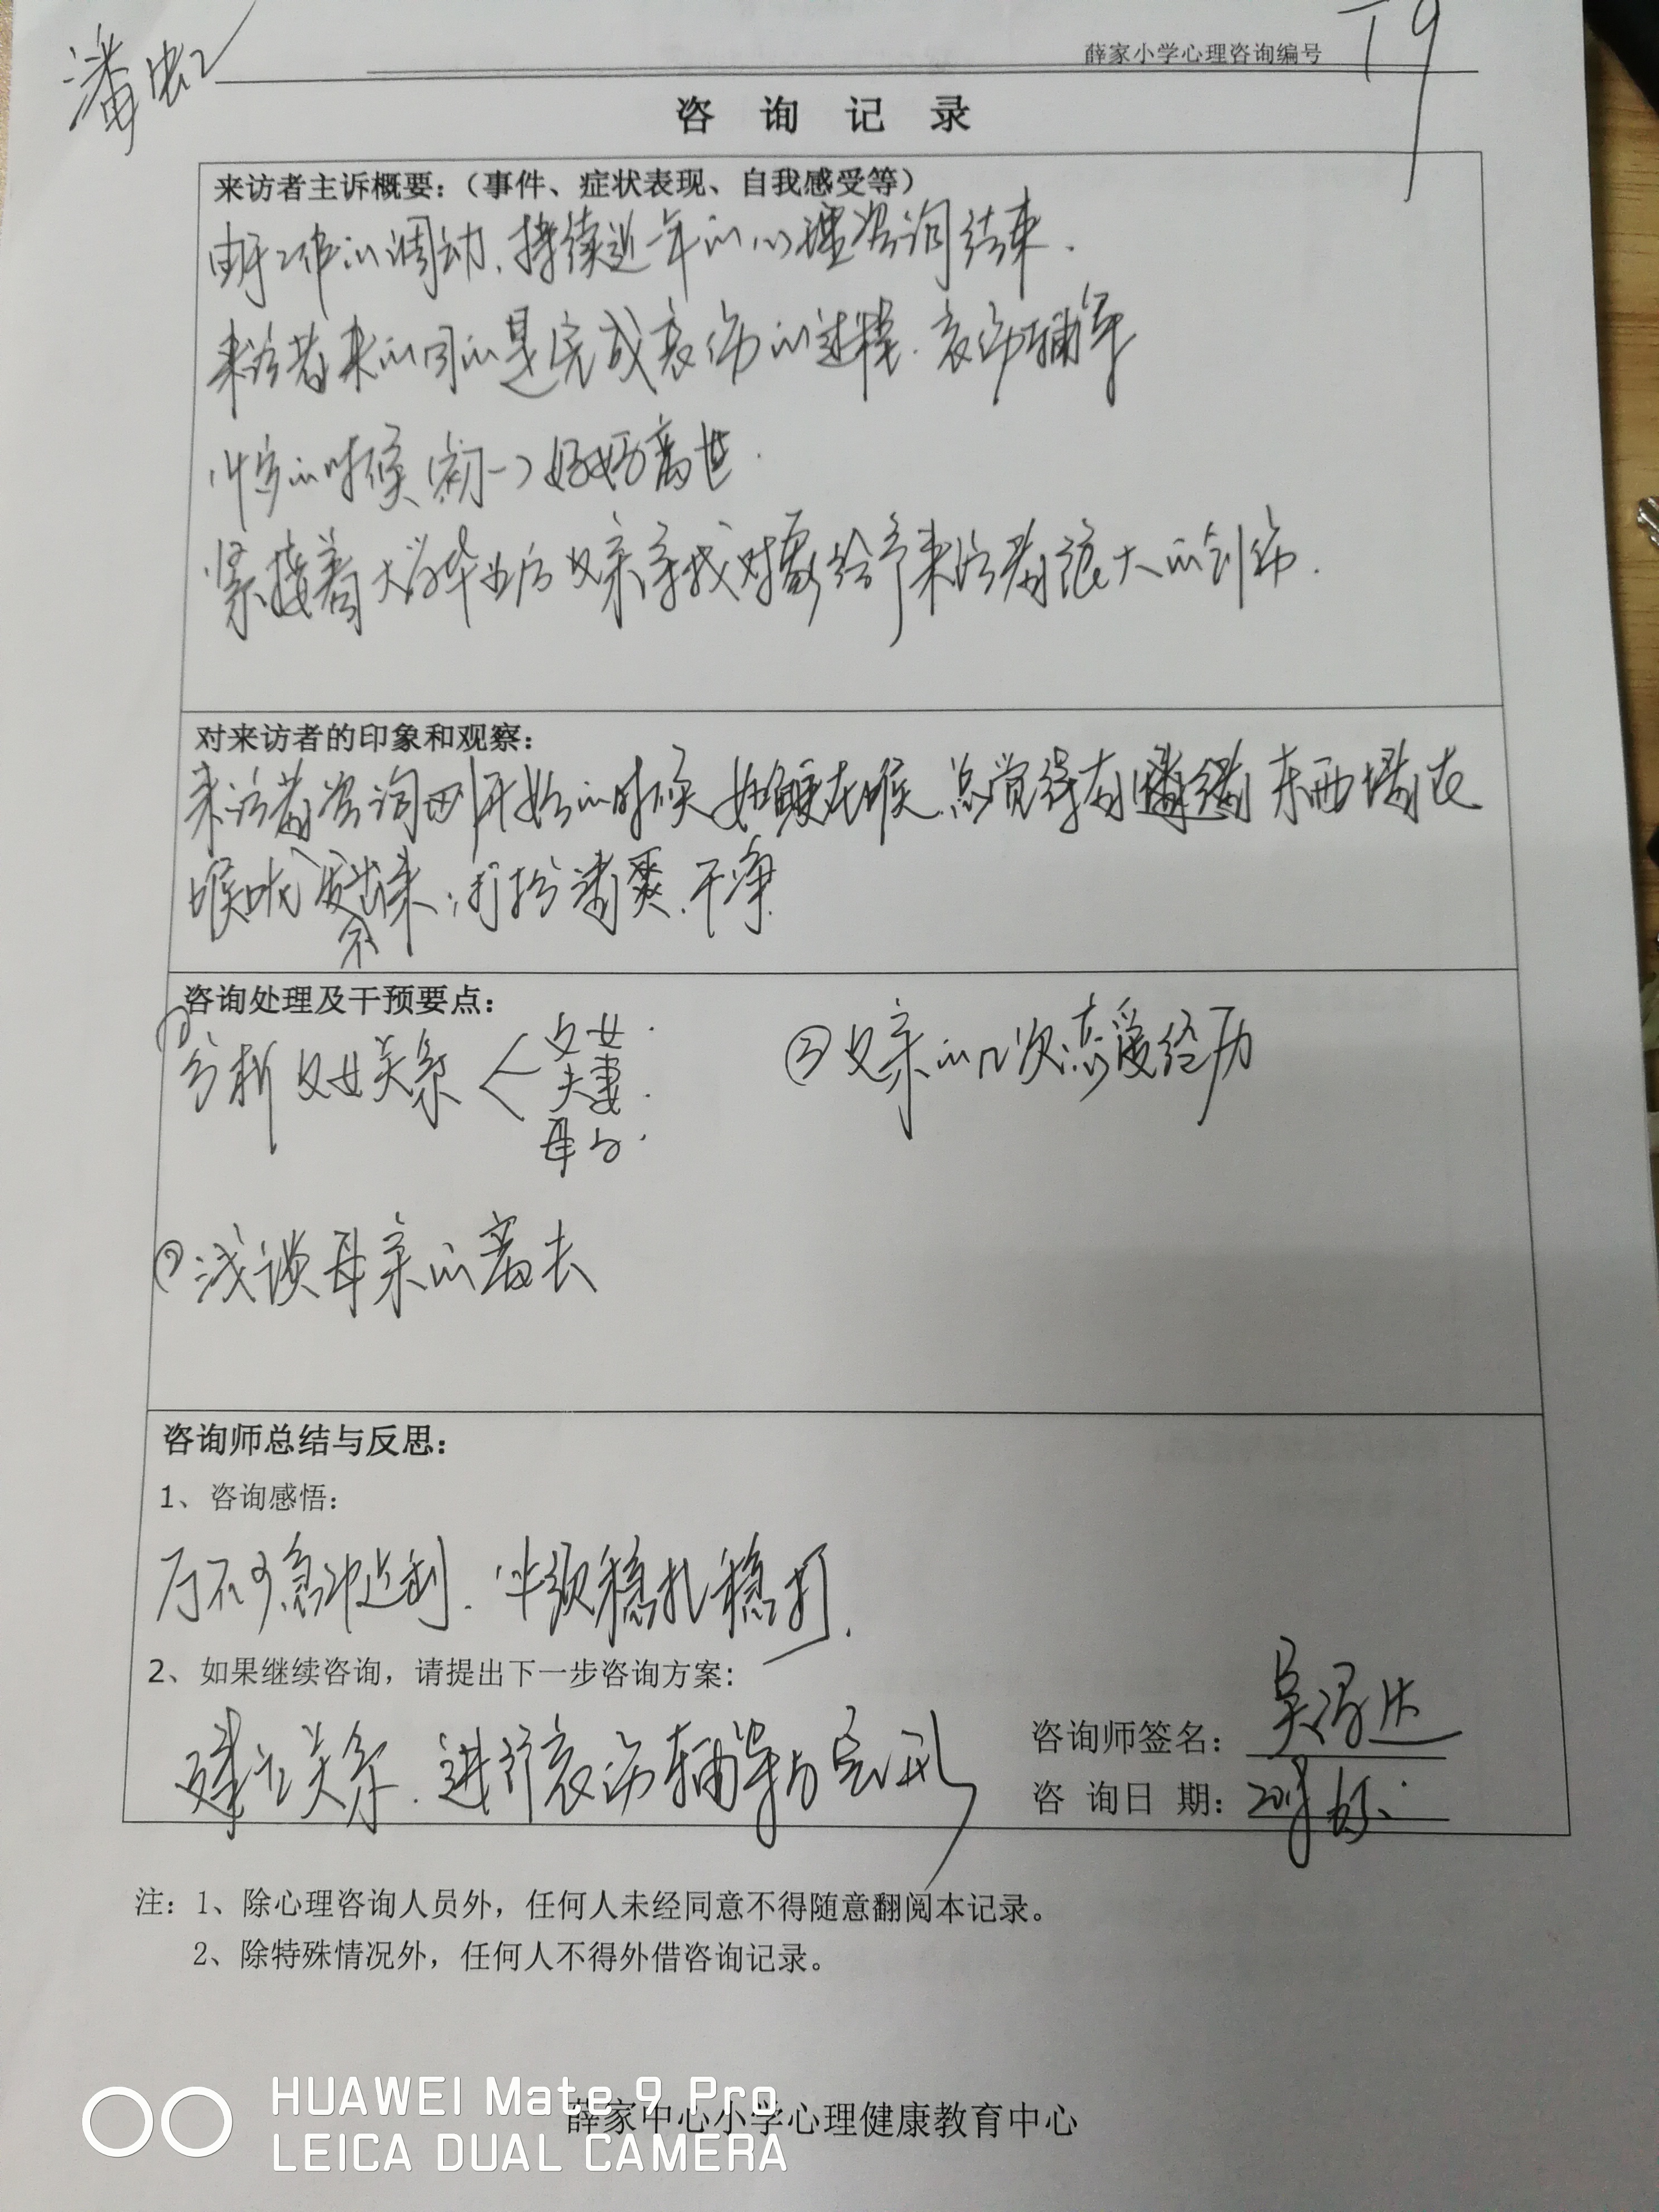 潘虹
薛家小学心理咨询编号 T9
咨 询 记 录
来访者主诉概要：（事件、症状表现、自我感受等）
由于工作的调动，持续近一年的心理咨询结束.
来访者来的目的是完成哀伤的过程.哀伤辅导
岁的时候(初一)妈妈离世.
紧接着大学毕业后父亲寻找对象给予来访者很大的创伤.
对来访者的印象和观察：
来访者咨询刚开始的时候如鲠在喉,总觉得有 东西堵在
喉咙发不出来,打扮清爽.干净
咨询处理及干预要点：
①分析父女关系 父女.
夫妻.
母子.
③父亲的几次恋爱经历
②浅谈母亲的离去
咨询师总结与反思：
1、咨询感悟：
万不可急冲近利.必须稳扎稳打.
2、如果继续咨询，请提出下一步咨询方案：
建立关系.进行哀伤辅导与
咨询师签名：吴
咨 询日 期：
注：1、除心理咨询人员外，任何人未经同意不得随意翻阅本记录。
2、除特殊情况外，任何人不得外借咨询记录。
薛家中心小学心理健康教育中心
HUAWEI Mate 9 Pro
LEICA DUAL CAMERA